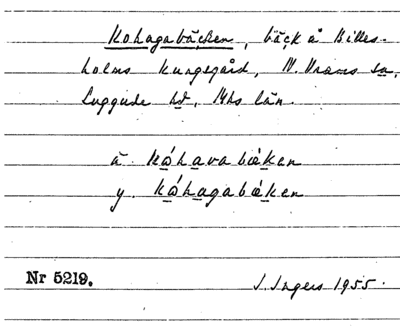 Kohagabäcken, bäck å Billes-
holms kungsgård, N. Vrams sn,
Luggude hd, Mhs län.
ä. kǻhavabä̀ken
y. kǻhagabä̀ken
Nr 5219. J. Ingers 1955.